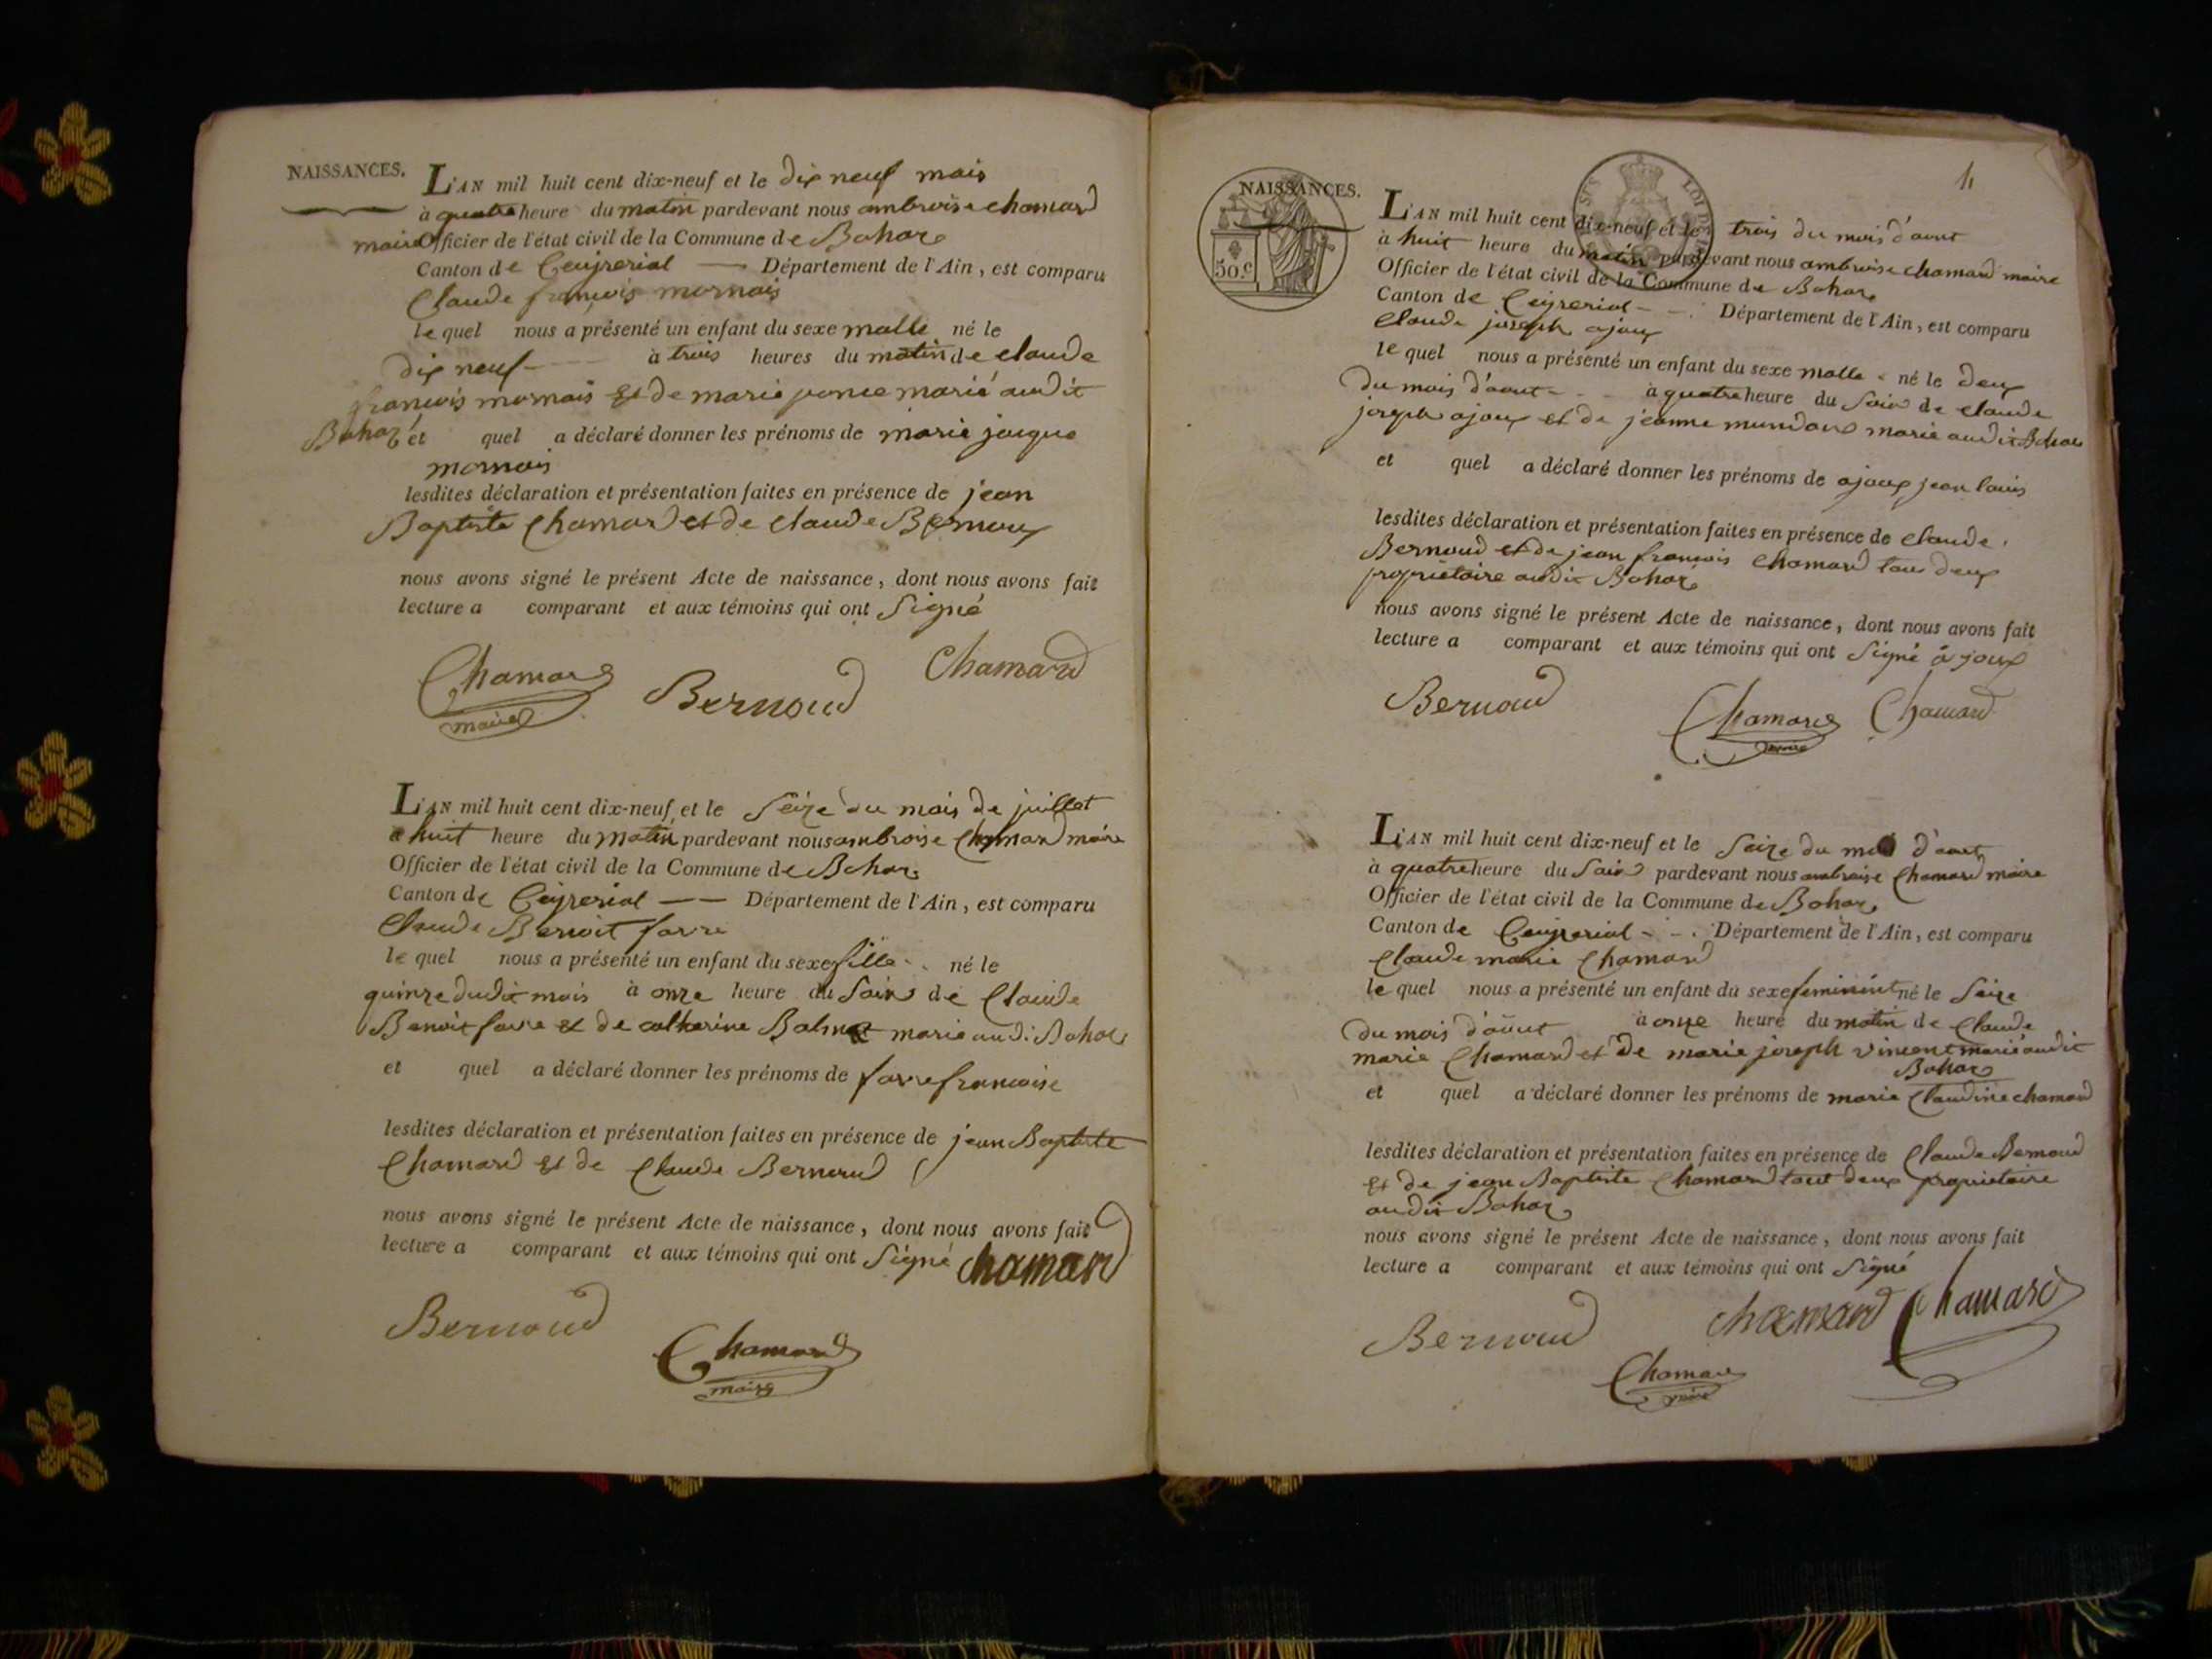 NAISSANCES.
L'AN mil huit cent dix-neuf et le dix neuf mais
à quatre heure du matin pardevant nous ambroise chamard
maire Officier de l'état civil de la Commune de Bohas
Canton de Ceyzeriat Département de l'Ain, est comparu
Claude françois mornais
le quel nous a présenté un enfant du sexe malle né le
dix neuf à trois heures du matin de claude
françois mornais et de marie ponce marié audit
Bohas et quel a déclaré donner les prénoms de marie jacque
mornais
lesdites déclaration et présentation faites en présence de jean
Baptiste Chamard et de claude Bernoux
nous avons signé le présent Acte de naissance, dont nous avons fait
lecture a comparant et aux témoins qui ont Signé
Chamard Bernoud Chamard
maire
L'AN mil huit cent dix-neuf, et le Seize du mois de juillet
a huit heure du matin pardevant nous ambroise Chamard maire
Officier de l'état civil de la Commune de Bohas
Canton de Ceyzeriat Département de l'Ain, est comparu
Claude Benoit favre
le quel nous a présenté un enfant du sexe fille né le
quinze dudit mois à onze heure du Soir de Claude
Benoit favre et de catherine marie audi Bohas
et quel a déclaré donner les prénoms de favre francoise
lesdites déclaration et présentation faites en présence de jean Baptiste
Chamard et de Claude Bernoud
nous avons signé le présent Acte de naissance, dont nous avons fait
lecture a comparant et aux témoins qui ont Signé chamard
Bernoud
Chamard
maire
4
NAISSANCES.
50.c
L'AN mil huit cent dix-neuf et le trois du mois d'aout
à huit heure du matin pardevant nous ambroise chamard maire
Officier de l'état civil de la Commune de Bohas
Canton de Ceyzeriat Département de l'Ain, est comparu
Claude joseph ajoux
le quel nous a présenté un enfant du sexe malle né le deux
du mois d'aout à quatre heure du Soir de claude
joseph ajoux et de jeanne marie audit Bohas
et quel a déclaré donner les prénoms de ajoux jean louis
lesdites déclaration et présentation faites en présence de claude
Bernoud et de jean françois Chamard tous deux
propriétaire audit Bohas
nous avons signé le présent Acte de naissance, dont nous avons fait
lecture a comparant et aux témoins qui ont Signé ajoux
Bernoud Chamard Chamard
maire
L'AN mil huit cent dix-neuf et le Seize du d'aout
à quatre heure du Soir pardevant nous ambroise Chamard maire
Officier de l'état civil de la Commune de Bohas
Canton de Ceyzeriat Département de l'Ain, est comparu
Claude marie Chamard
le quel nous a présenté un enfant du sexe feminint né le Seize
du mois d'aout à onze heure du matin de Claude
marie Chamard et de marie joseph vincent marié audit
Bohas
et quel a déclaré donner les prénoms de marie Claudine chamard
lesdites déclaration et présentation faites en présence de Claude Bernoud
et de jean Baptiste Chamard tout deux propriétaire
audit Bohas
nous avons signé le présent Acte de naissance, dont nous avons fait
lecture a comparant et aux témoins qui ont Signé
Bernoud chamard Chamard
Chamard
maire